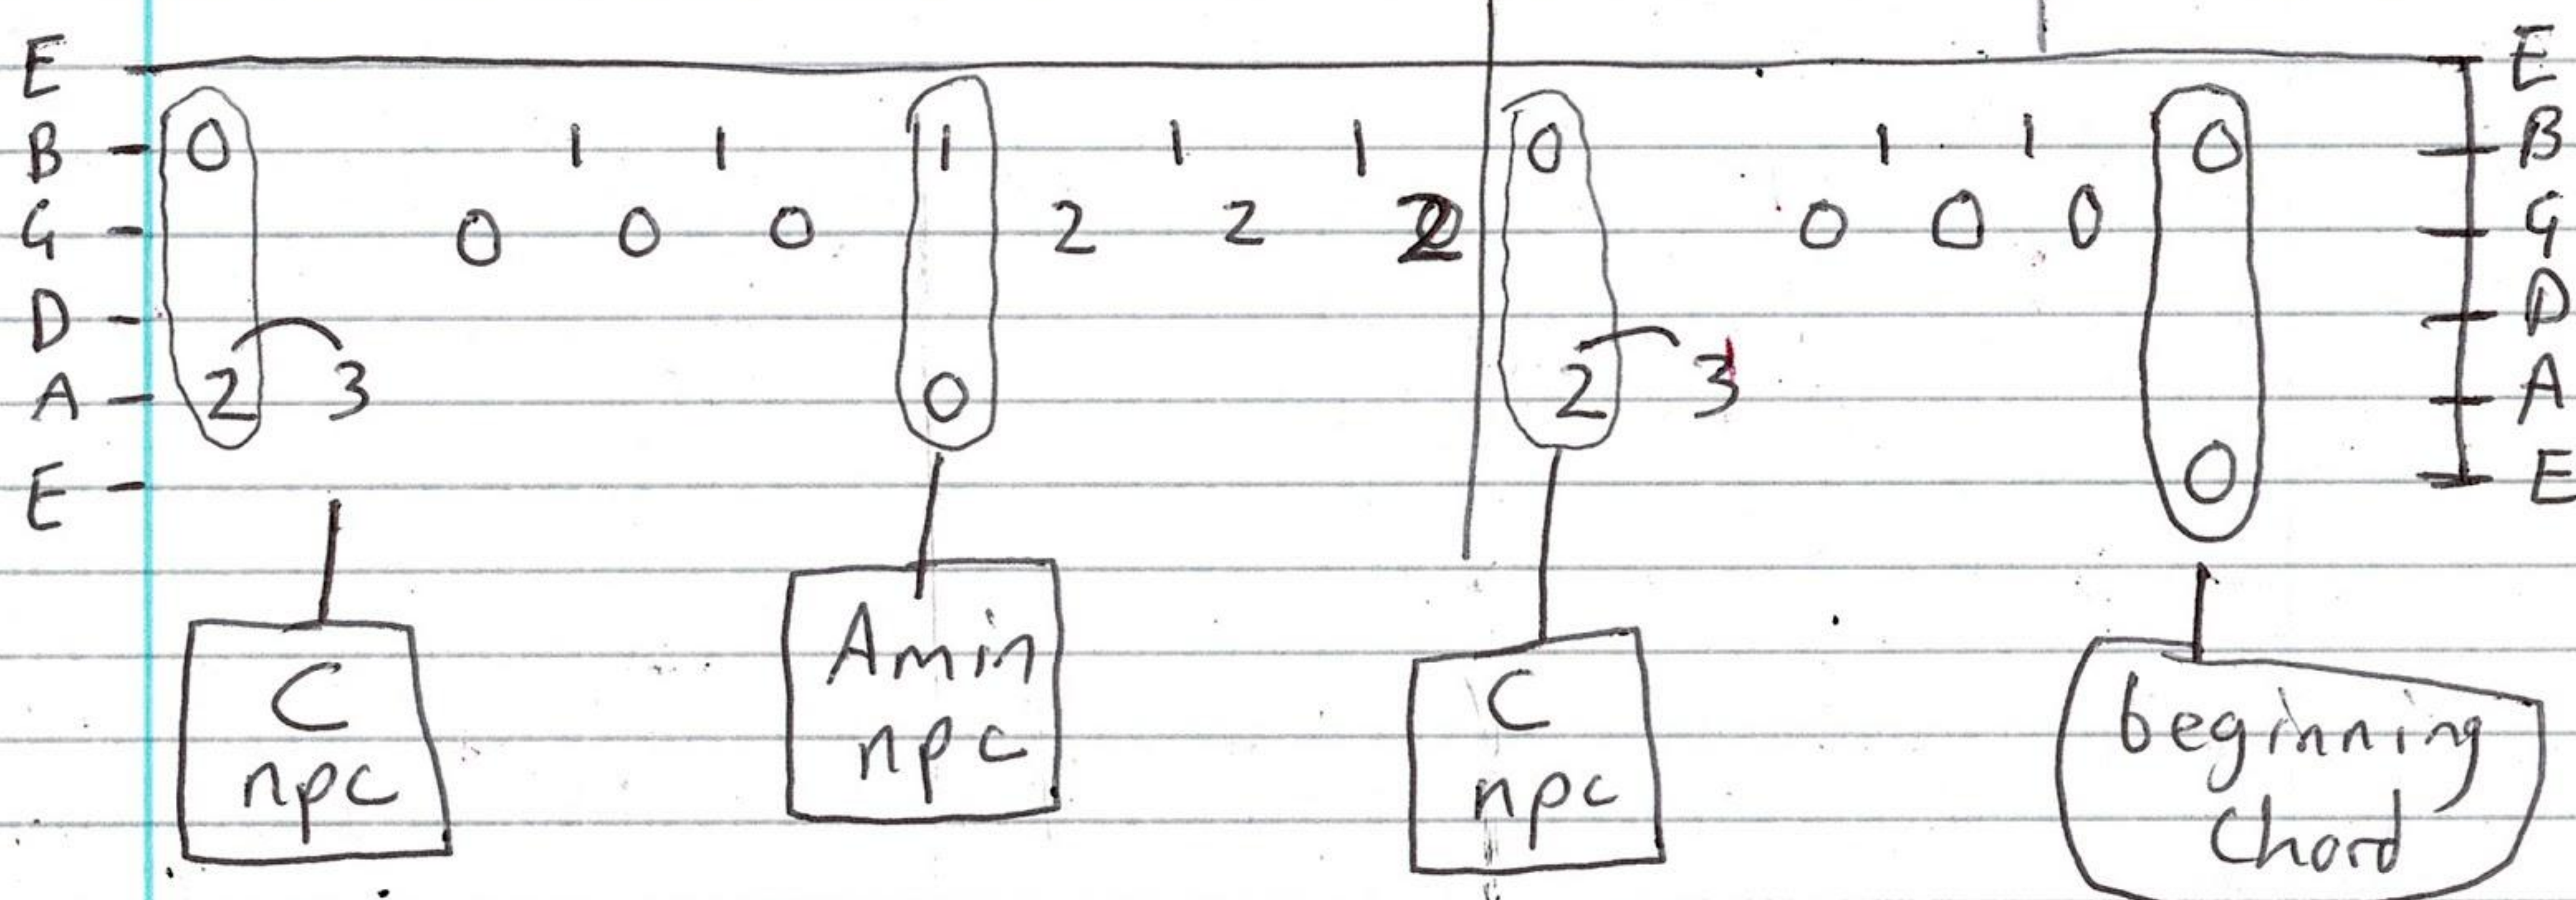 E E
B 0 1 1 1 1 1 0 1 1 0 B
G 0 0 0 2 2 2 0 0 0 G
D D
A 2 3 0 2 3 A
E 0 E
C
npc
Amin
npc
C
npc
beginning
chord